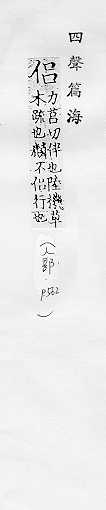 四聲篇海
侣
力莒切伴也陸機草
木疏也麟不侣行也
(人部. P562)